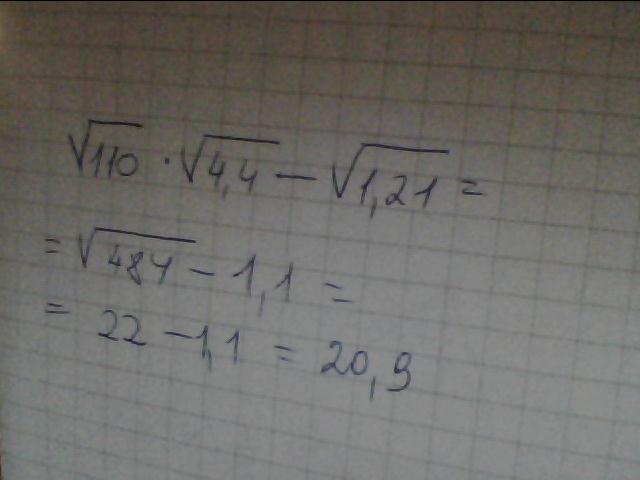 √110 · √4,4 — √1,21 =
= √484 — 1,1 =
= 22 — 1,1 = 20,9